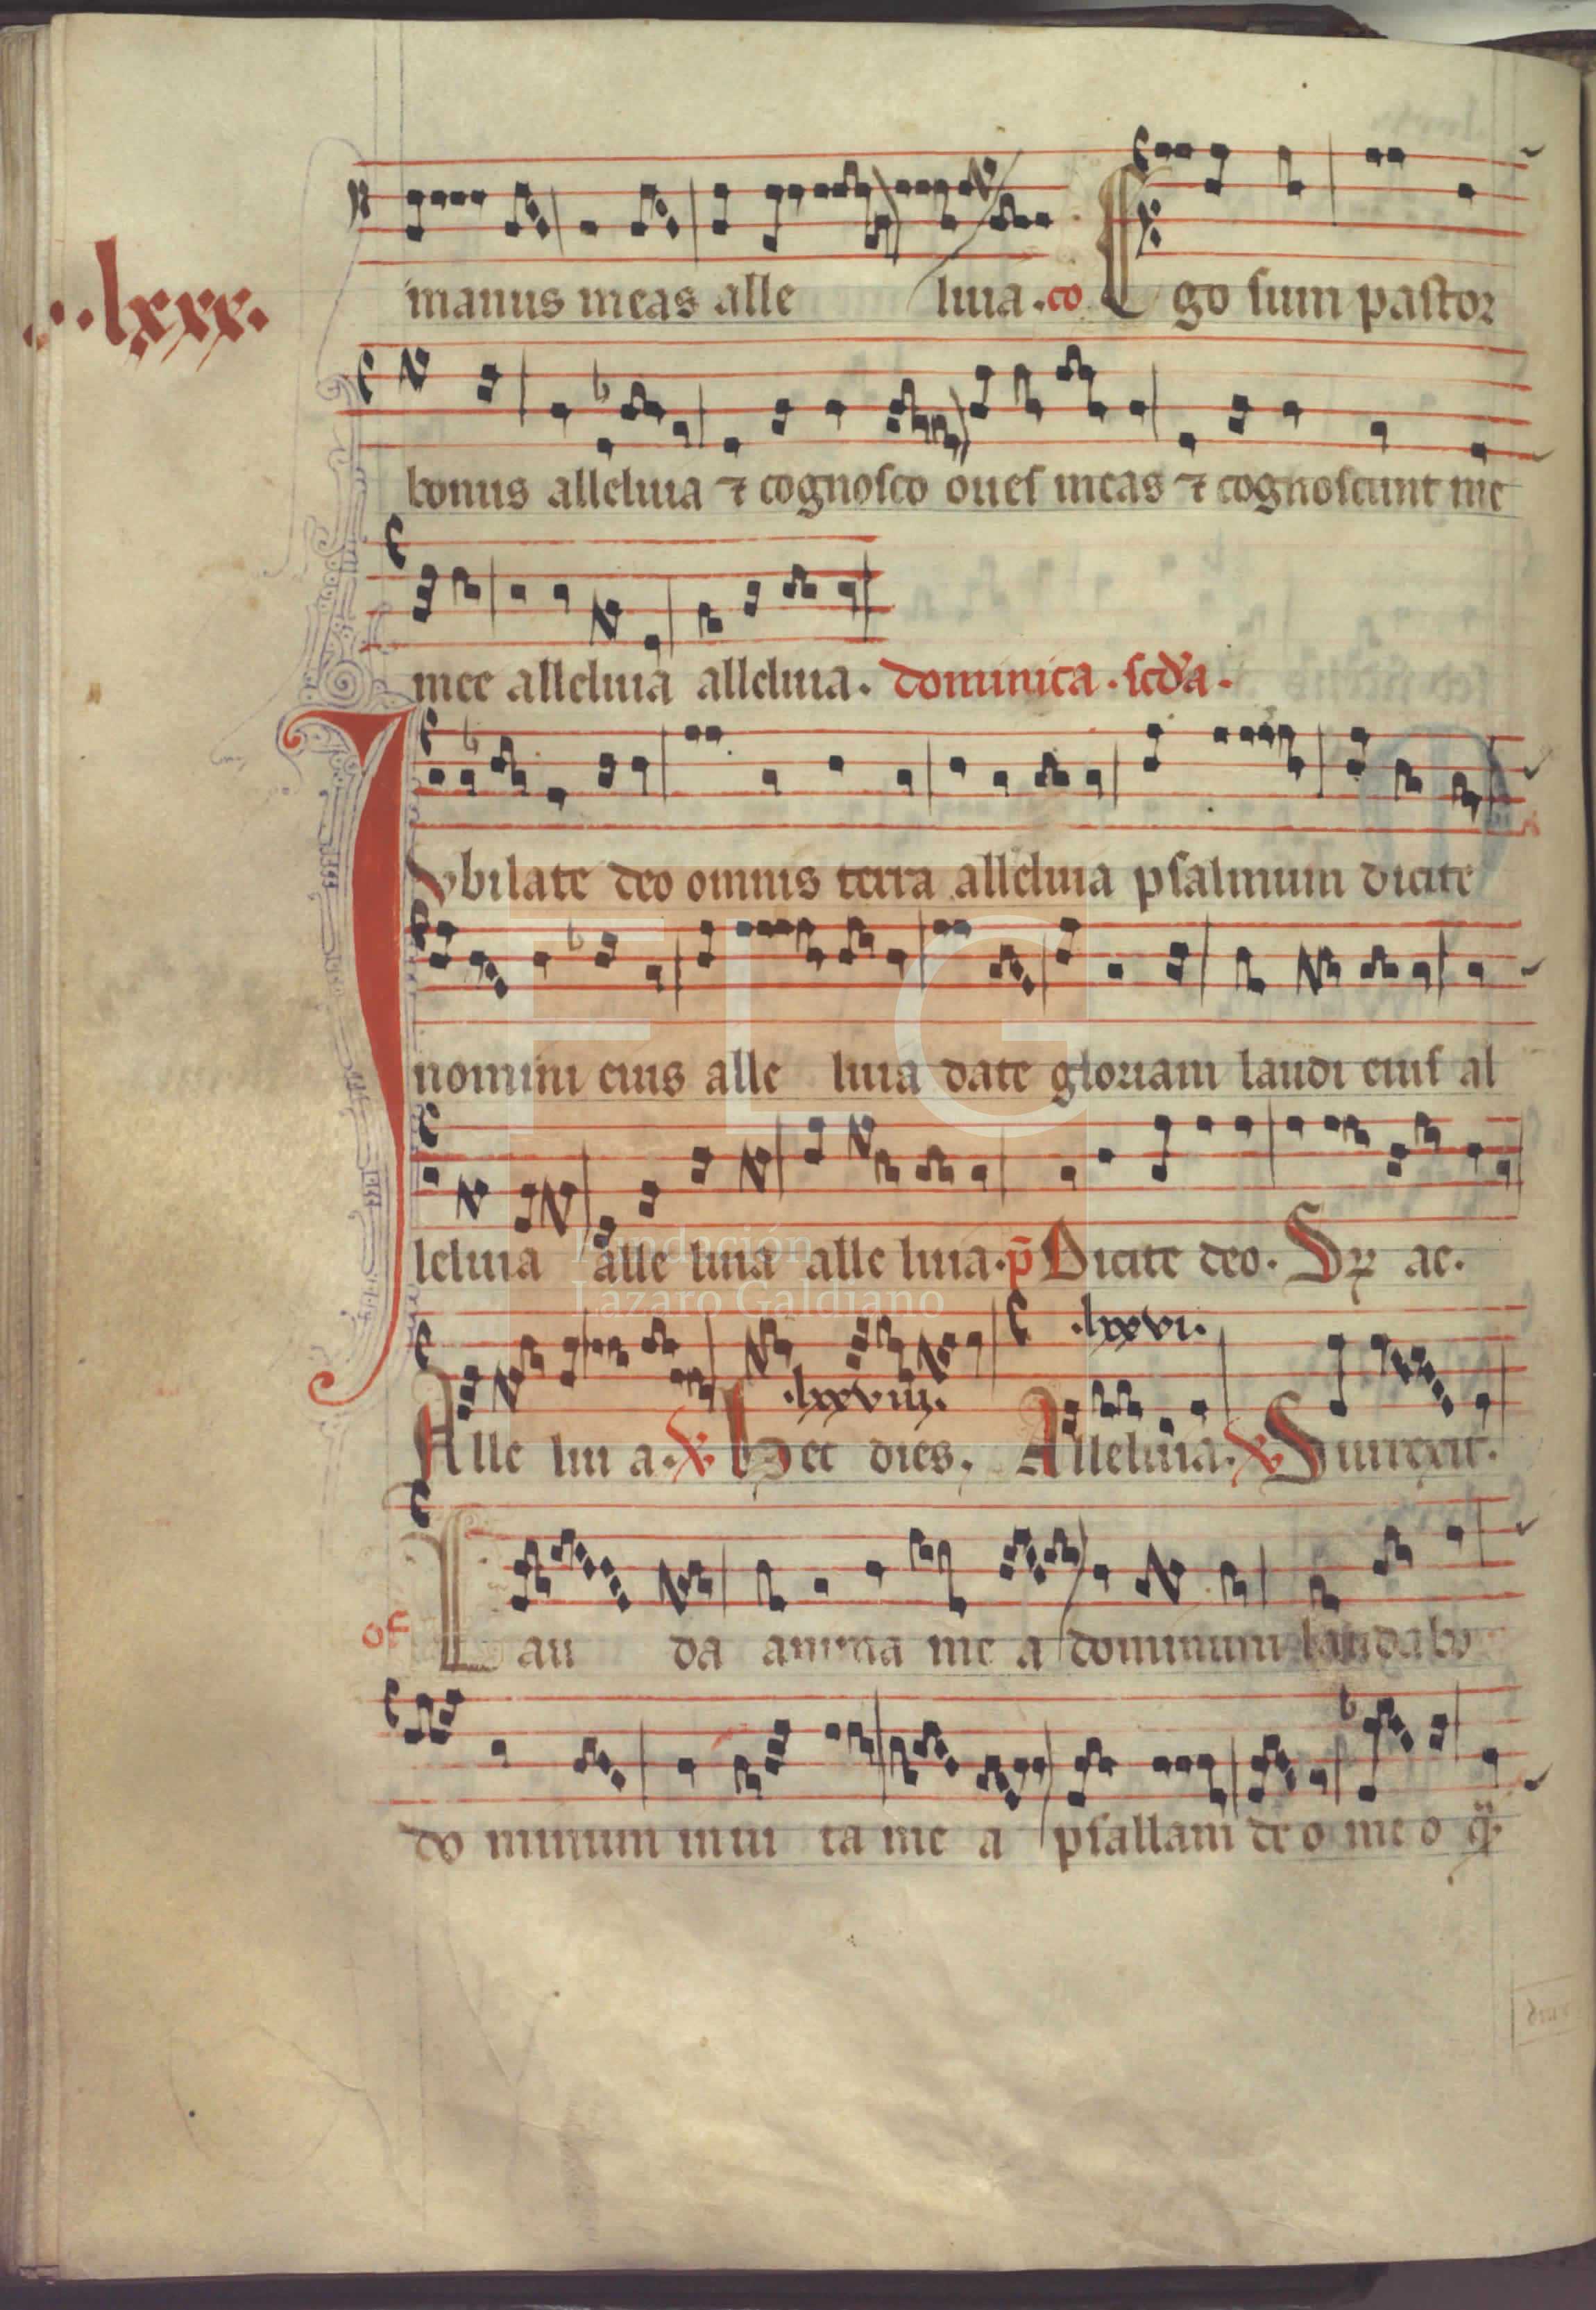 .lxxx.
manus meas alle luia. co Ego sum pastor
bonus alleluia ⁊ cognosco oues meas ⁊ cognoscunt me
mee alleluia alleluia. dominica. scda.
Jvbilate deo omnis terra alleluia psalmum dicite
nomini eius alle luia date gloriam laudi eius al
leluia alle luia alle luia. p̄ Dicite deo. Sꝝ ac.
.lxxvi.
.lxxviii.
Alle lui a. ℣. Hec dies. Alleluia. ℣ Surrexit.
of Lau da anima me a dominum laudabo
do minum in ui ta me a psallam de o me o
FLG
Fundación
Lázaro Galdiano